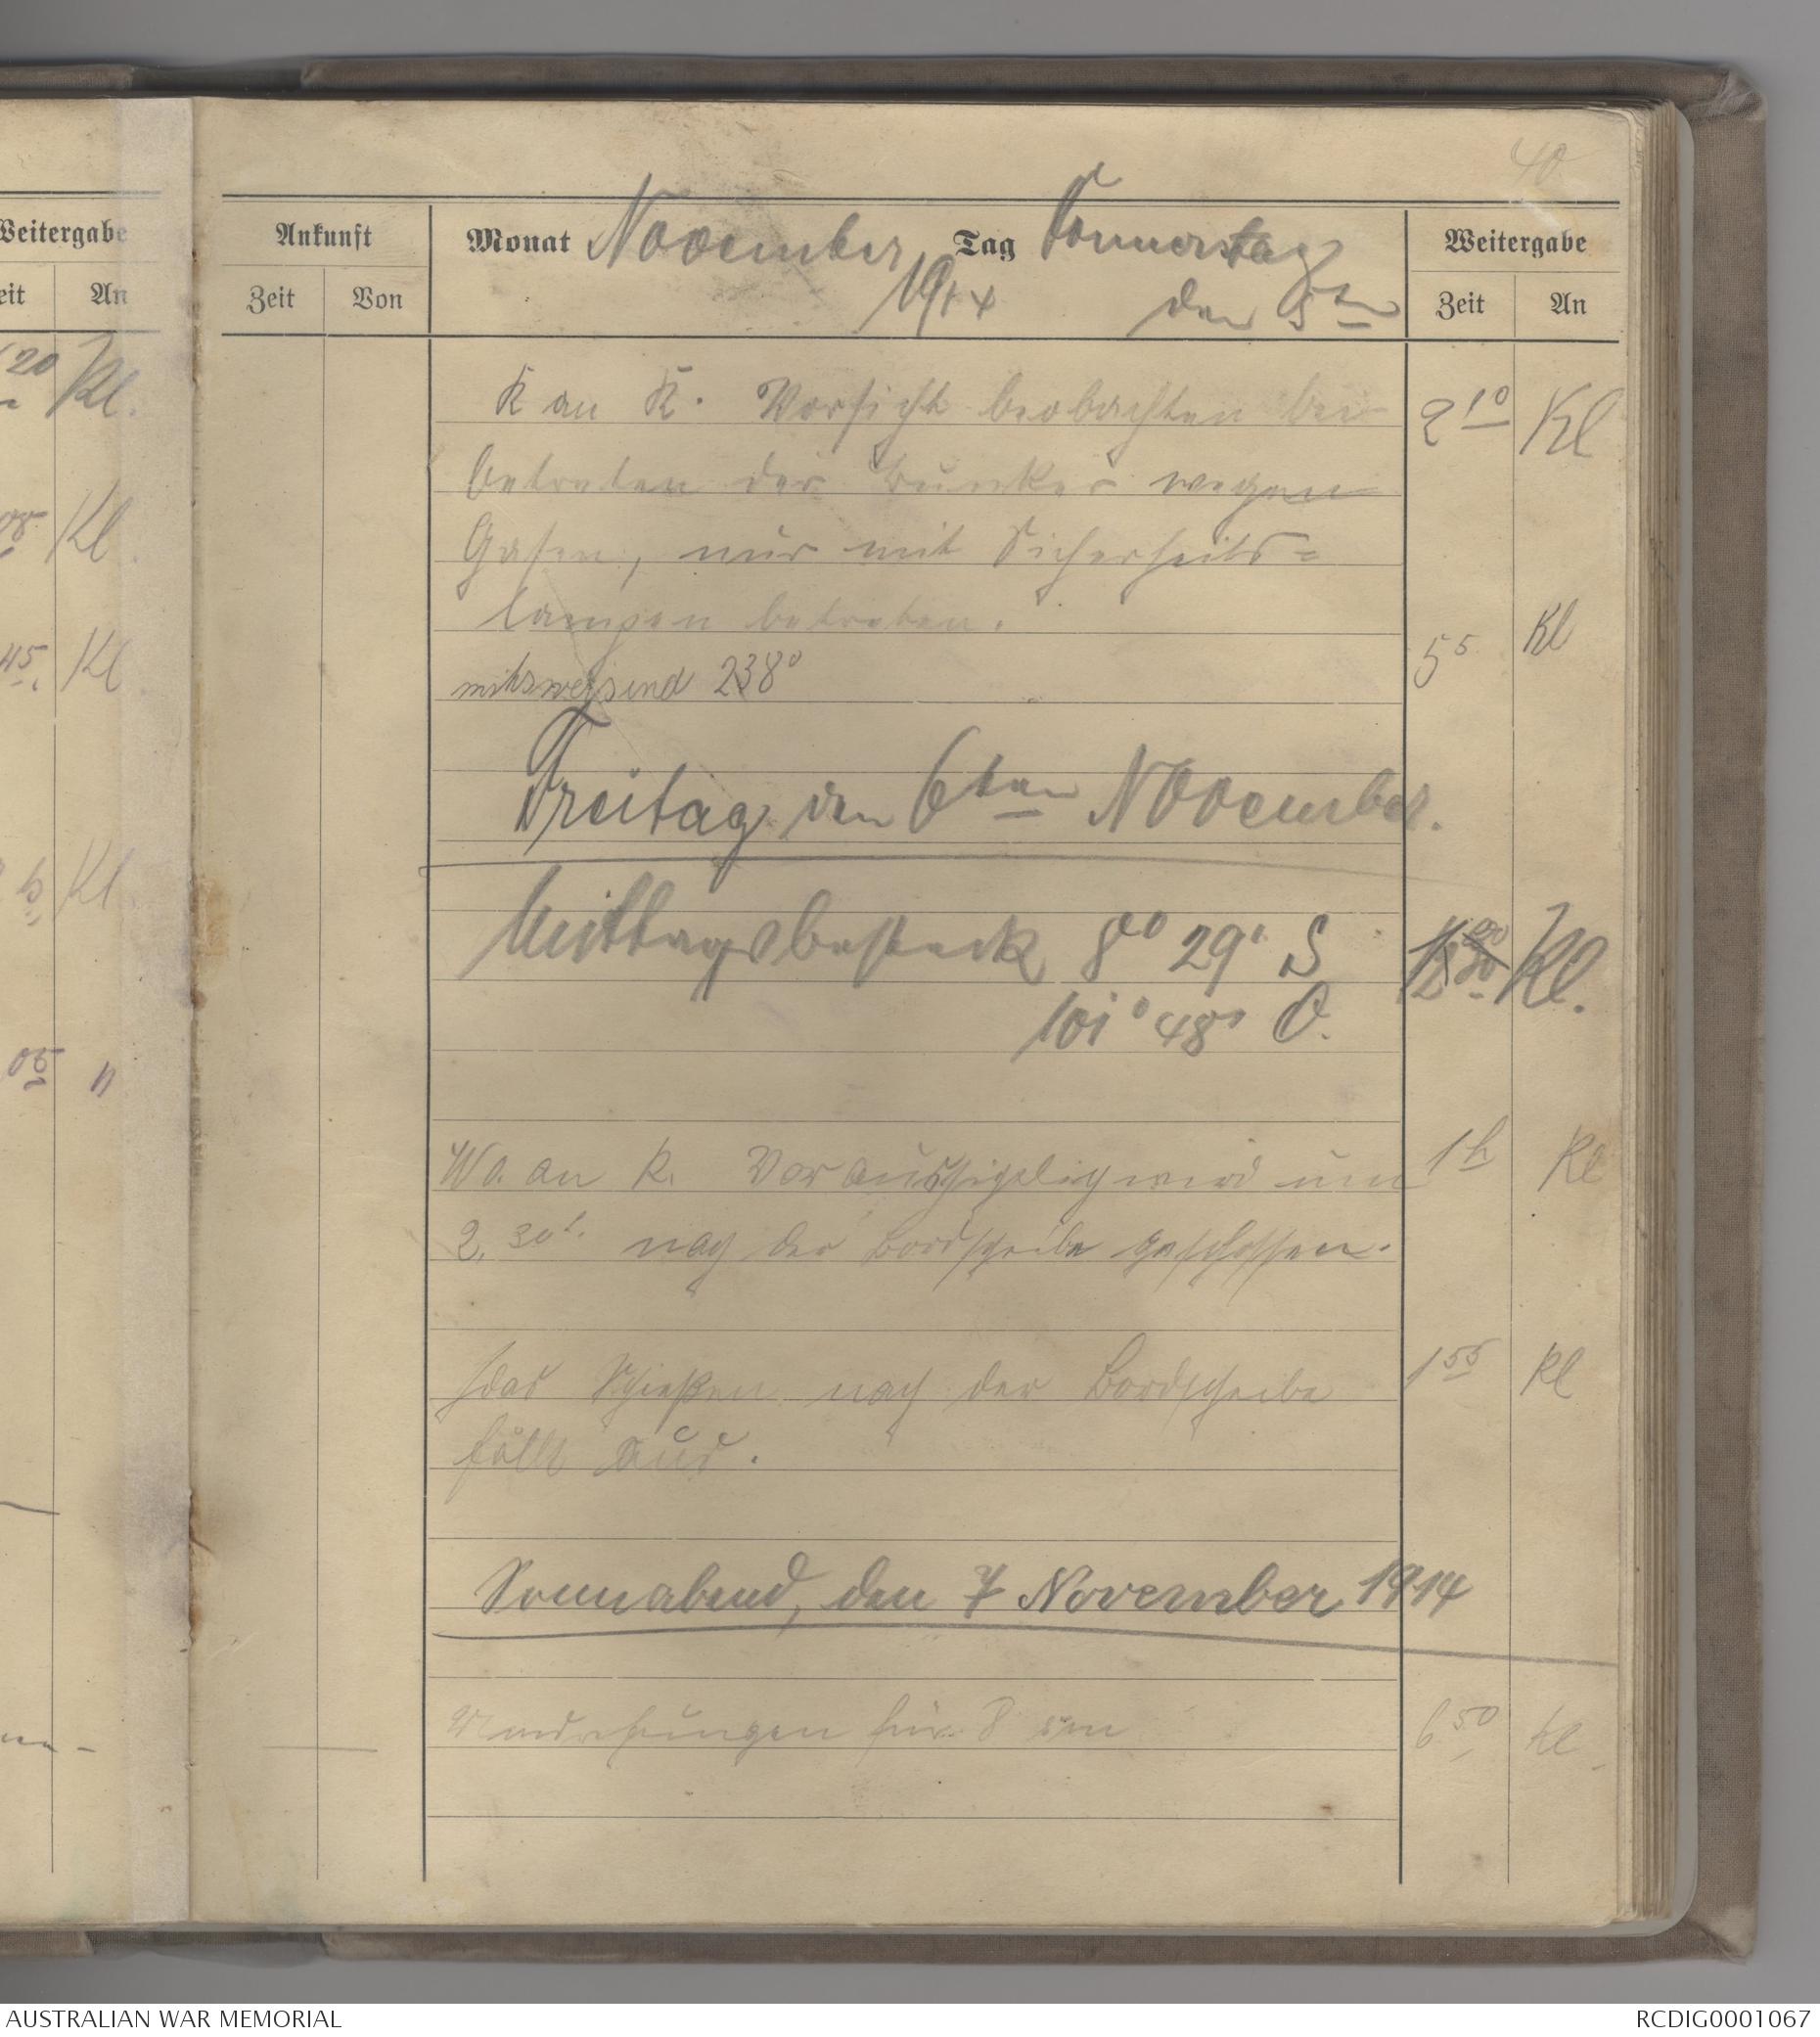 40
Weitergabe
Zeit An
20 Kl.
08 Kl.
45 Kl.
5 Kl.
05 "
Ankunft Monat November Tag Donnerstag Weitergabe
Zeit Von 1914 den 5ten Zeit An
K an K. Vorsicht beobachten bei 2 10 Kl
betreten der Bunker wegen
Gasen, nur mit Sicherheits=
lampen betreten.
mißweisend 238° 5 5 Kl
Freitag den 6ten November.
Mittagsbesteck 8° 29' S Kl.
101° 48' O.
W.O. an K. Voraussichtlich wird um 1 h Kl
2.30 h. nach der Bordscheibe geschossen.
das Schießen nach der Bordscheibe 1 55 Kl
fällt aus.
Sonnabend, den 7 November 1914
Umdrehungen für 8 sm 6 50 Kl
AUSTRALIAN WAR MEMORIAL RCDIG0001067